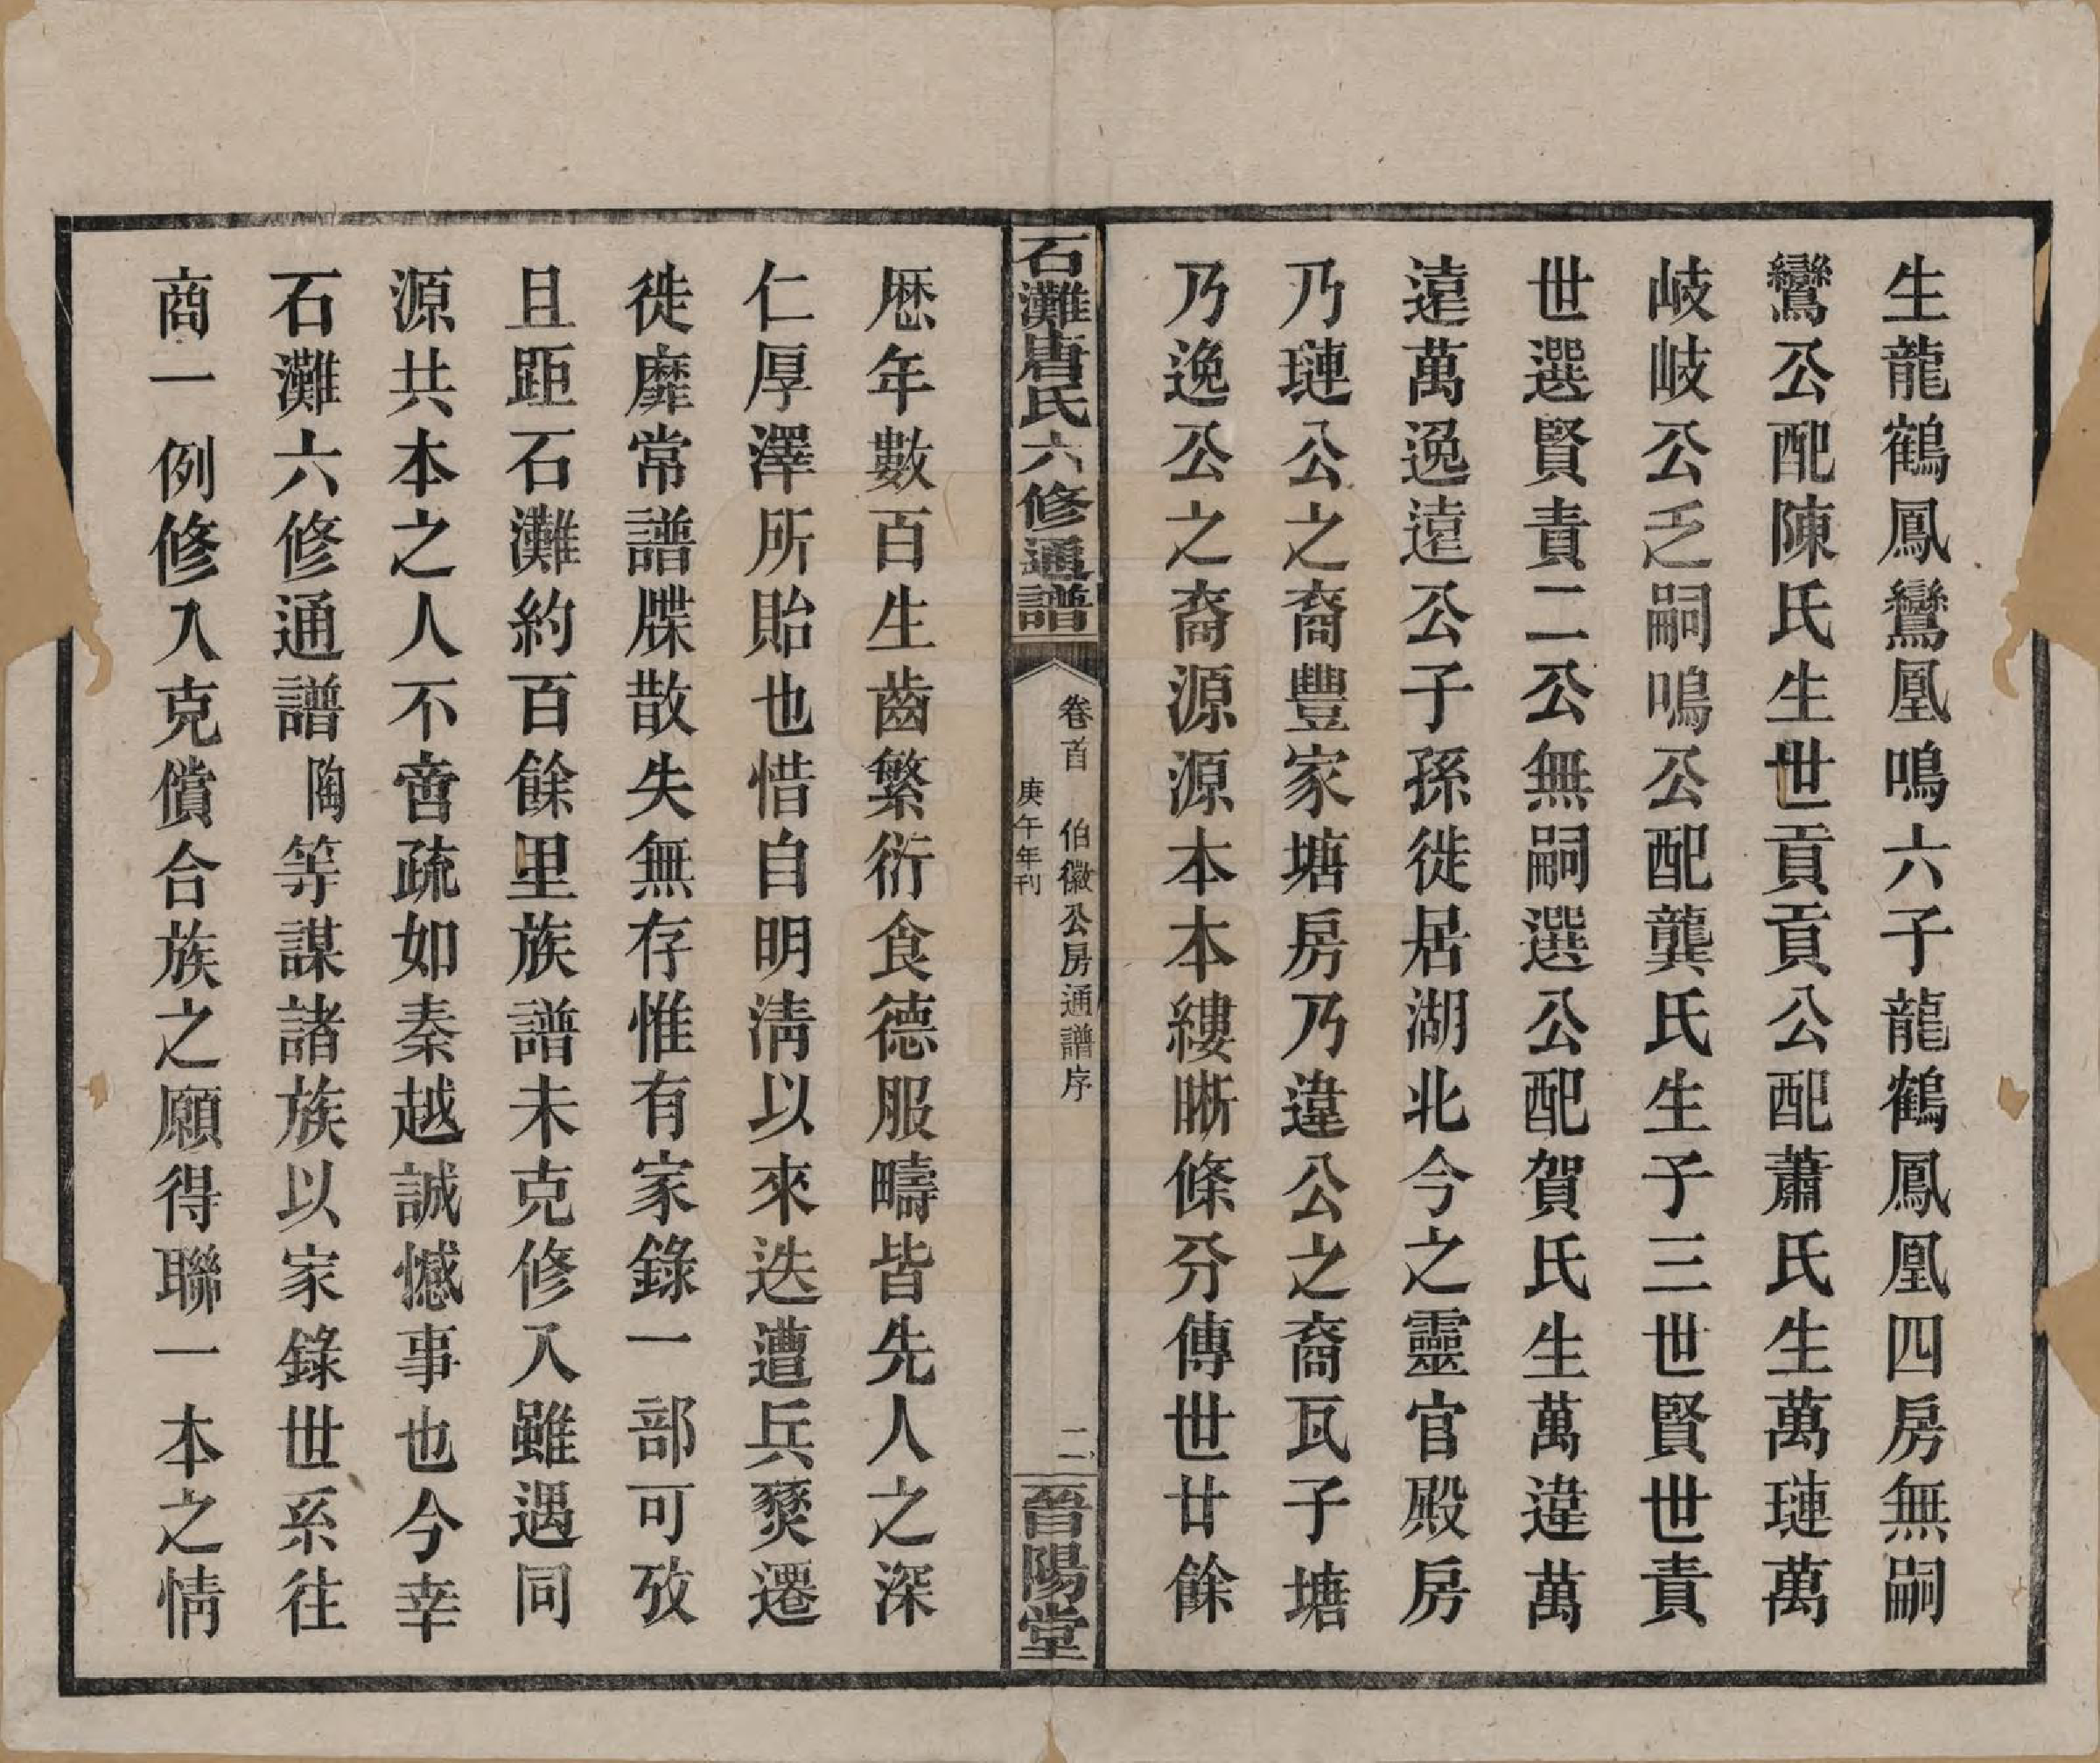 生龍鶴鳳鸞凰鳴六子龍鶴鳳凰四房無嗣
鸞公配陳氏生世貢貢公配蕭氏生萬璉萬
岐岐公乏嗣鳴公配龔氏生子三世賢世責
世選賢責二公無嗣選公配賀氏生萬違萬
遠萬逸遠公子孫徙居湖北今之靈官殿房
乃璉公之裔豐家塘房乃違公之裔瓦子塘
乃逸公之裔源源本本縷晰條分傳世廿餘
石灘唐氏六修通譜
卷首 伯徽公房通譜序
庚午年刊
二
晉陽堂
歷年數百生齒繁衍食德服疇皆先人之深
仁厚澤所貽也惜自明清以來迭遭兵燹遷
徙靡常譜牒散失無存惟有家錄一部可攷
且距石灘約百餘里族譜未克修入雖遇同
源共本之人不啻疏如秦越誠憾事也今幸
石灘六修通譜陶等謀諸族以家錄世系往
商一例修入克償合族之願得聯一本之情